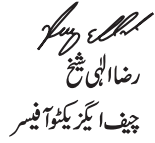 رضا الہی شیخ
چیف ایگزیکٹو آفیسر